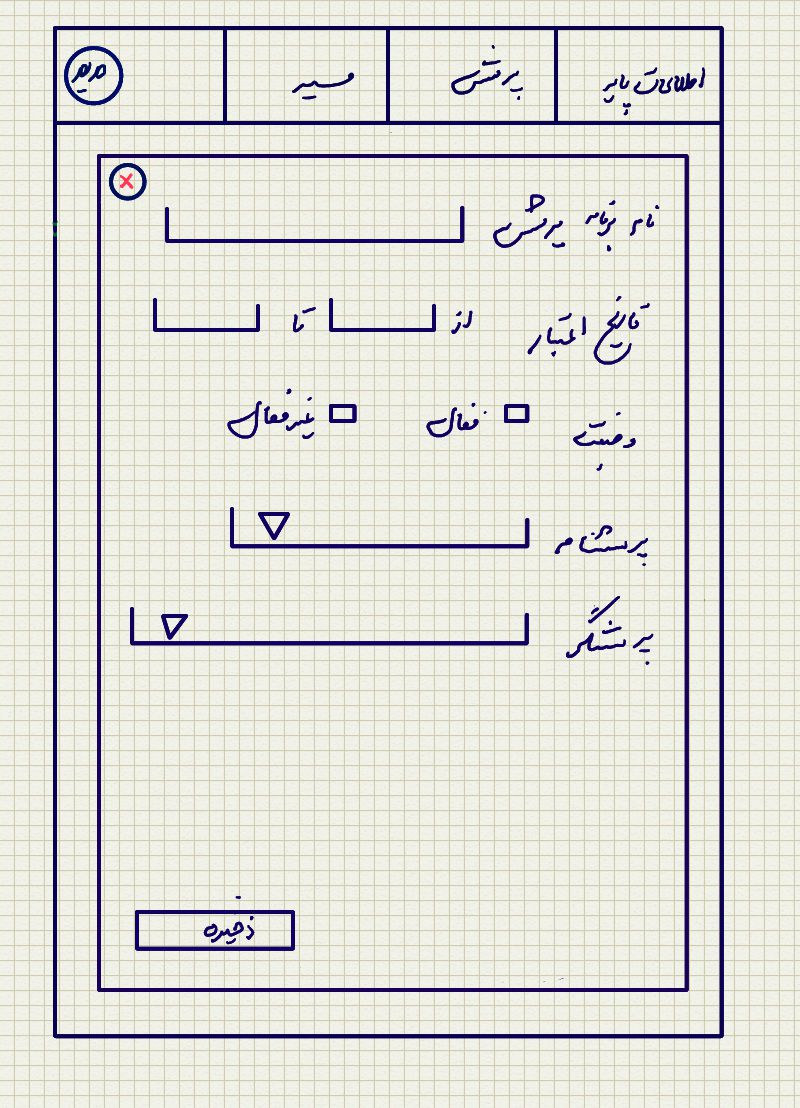 اطلاعات پایه پرسش مسیر مدیر
نام برنامه پرسش
تاریخ اعتبار از تا
وضعیت فعال غیرفعال
پرسشنامه
پرسشگر
ذخیره